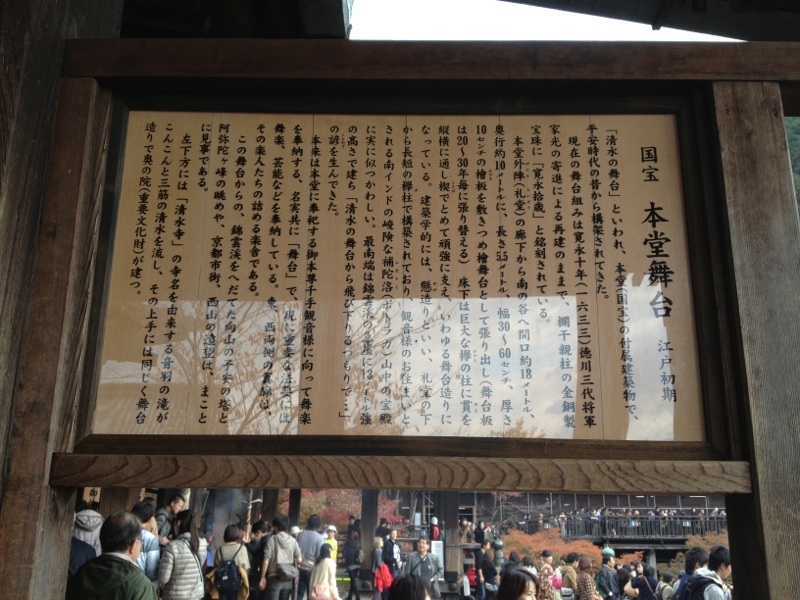 国宝 本堂舞台 江戸初期
「清水の舞台」といわれ、本堂(国宝)の付属建築物で、
平安時代の昔から構架されてきた。
現在の舞台組みは寛永十年(一六三三)徳川三代将軍
家光の寄進による再建のままで、欄干親柱の金銅製
宝珠に「寛永拾歳」と銘刻されている。
本堂外陣(礼堂)の廊下から南の谷へ間口約18メートル、
奥行約10メートルに、長さ5.5メートル、幅30〜60センチ、厚さ
10センチの檜板を敷きつめ檜舞台として張り出し(舞台板
は20〜30年毎に張り替える)床下は巨大な欅の柱に貫を
縦横に通し楔でとめて頑強に支え、いわゆる舞台造りに
なっている。建築学的には、懸造りといい、礼堂の下
から長短の欅柱で構築されており、観音様のお住まいと
される南インドの峻険な補陀洛(ポトラカ)山中の宝殿
に実に似つかわしい。最南端は錦雲渓の急崖に13メートル強
の高さで建ち「清水の舞台から飛び下りるつもりで…」
の諺を生んできた。
本来は本堂に奉祀する御本尊千手観音様に向って舞楽
を奉納する、名実共に「舞台」で、現に重要な法会には
舞楽、芸能などを奉納している。東、西両側の翼廊は、
その楽人たちの詰める楽舎である。
この舞台からの、錦雲渓をへだてた向山の子安の塔と
阿弥陀ヶ峰の眺めや、京都市街、西山の遠望は、まこと
に見事である。
左下方には「清水寺」の寺名を由来する音羽の滝が
こんこんと三筋の清水を流し、その上手には同じく舞台
造りで奥の院(重要文化財)が建つ。